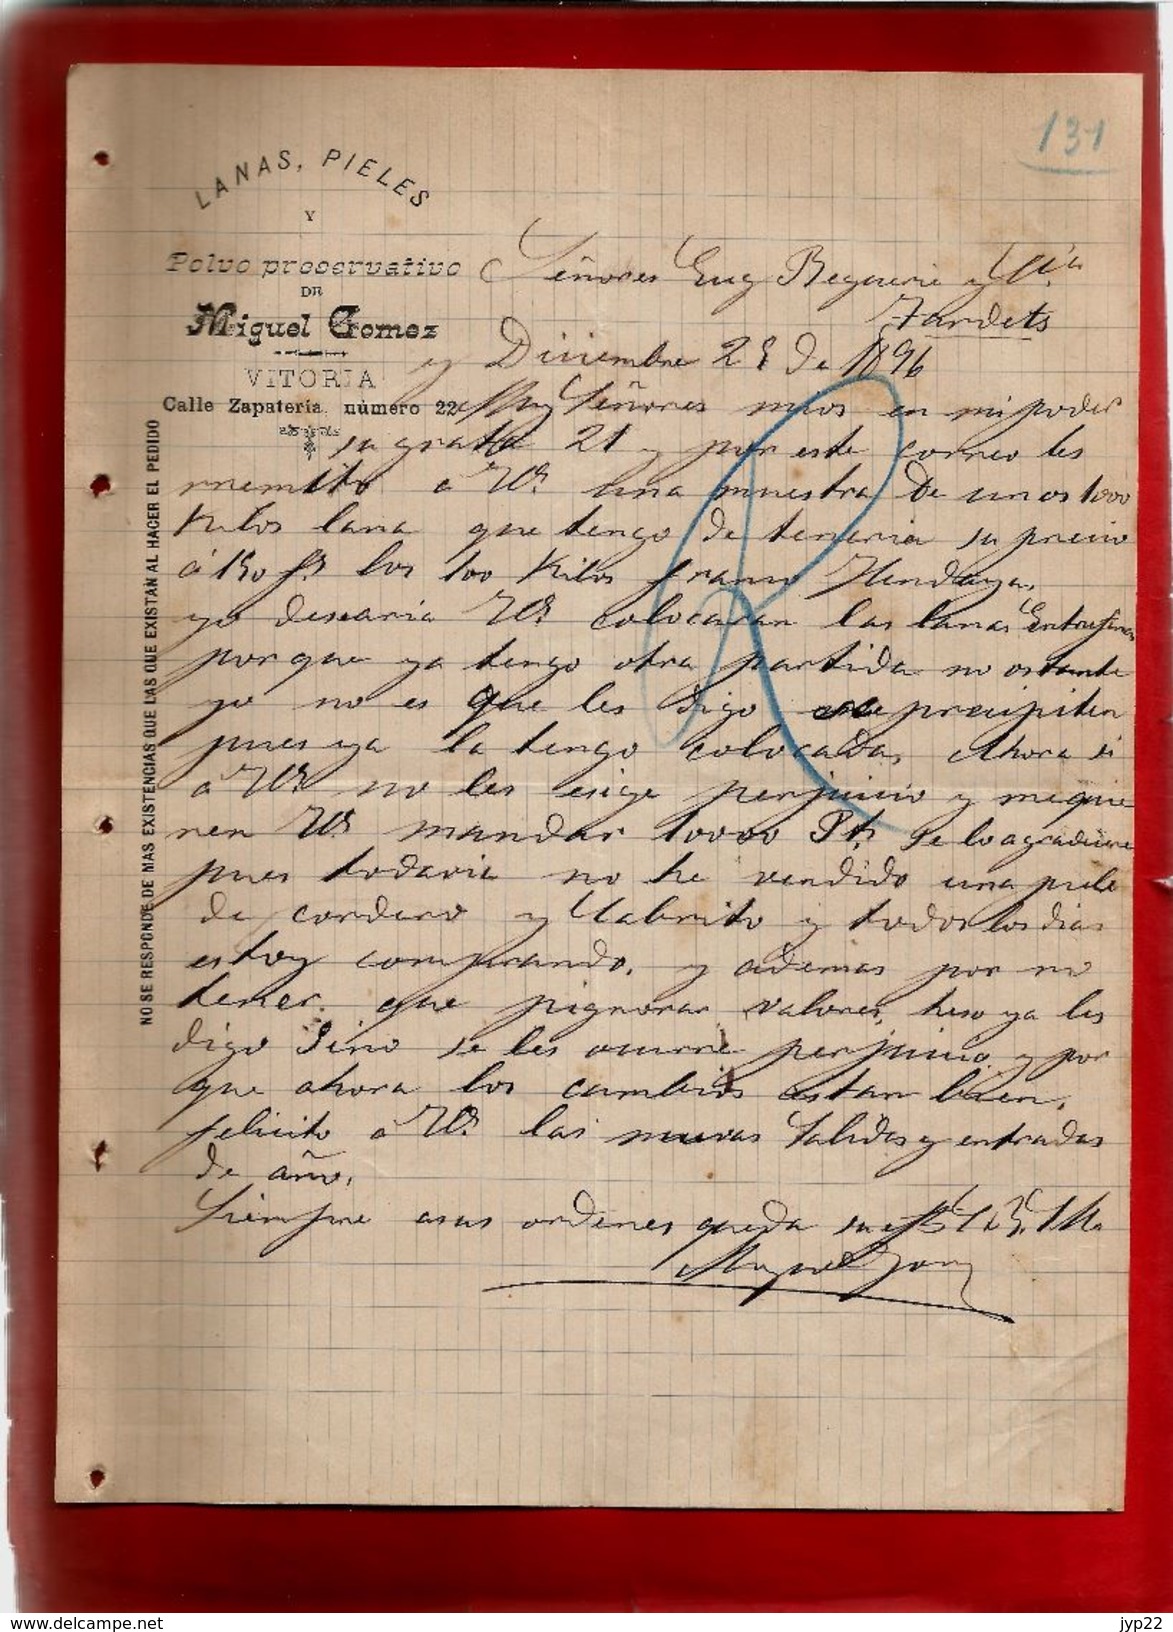 131
LANAS, PIELES
Y
Polvo preservativo
DE
Miguel Gomez
VITORIA
Calle Zapatería, número 22
NO SE RESPONDE DE MAS EXISTENCIAS QUE LAS QUE EXISTAN AL HACER EL PEDIDO
Señores Eug Beguerie y Cia
Tardets
y Diciembre 28 de 1896
Muy Señores mios en mi poder
su grata 21 y por este correo les
rremito á Vds una muestra de unos 1000
Kilos lana que tengo de teneria su precio
á 150 fs los 100 Kilos franco Hendaya,
yo desearia Vds colocaran las lanas Entrefinas
porque ya tengo otra partida no ostante
yo no es que les digo se precipiten
pues ya la tengo colocada, Ahora si
á Vds no les esige perjuicio y me quie
ren Vds mandar 10000 Pts se lo agradecere
pues todavia no he vendido una piel
de cordero y Cabrito y todos los dias
estoy comprando, y ademas por no
tener que pignorar valores, heso ya les
digo Sino se les ocurre perjuicio y por
que ahora los cambios estan bien,
felicito á Vds las nuevas Salidas y entradas
de año,
Siempre a sus ordenes queda su
Miguel Gomez
www.delcampe.net
jyp22